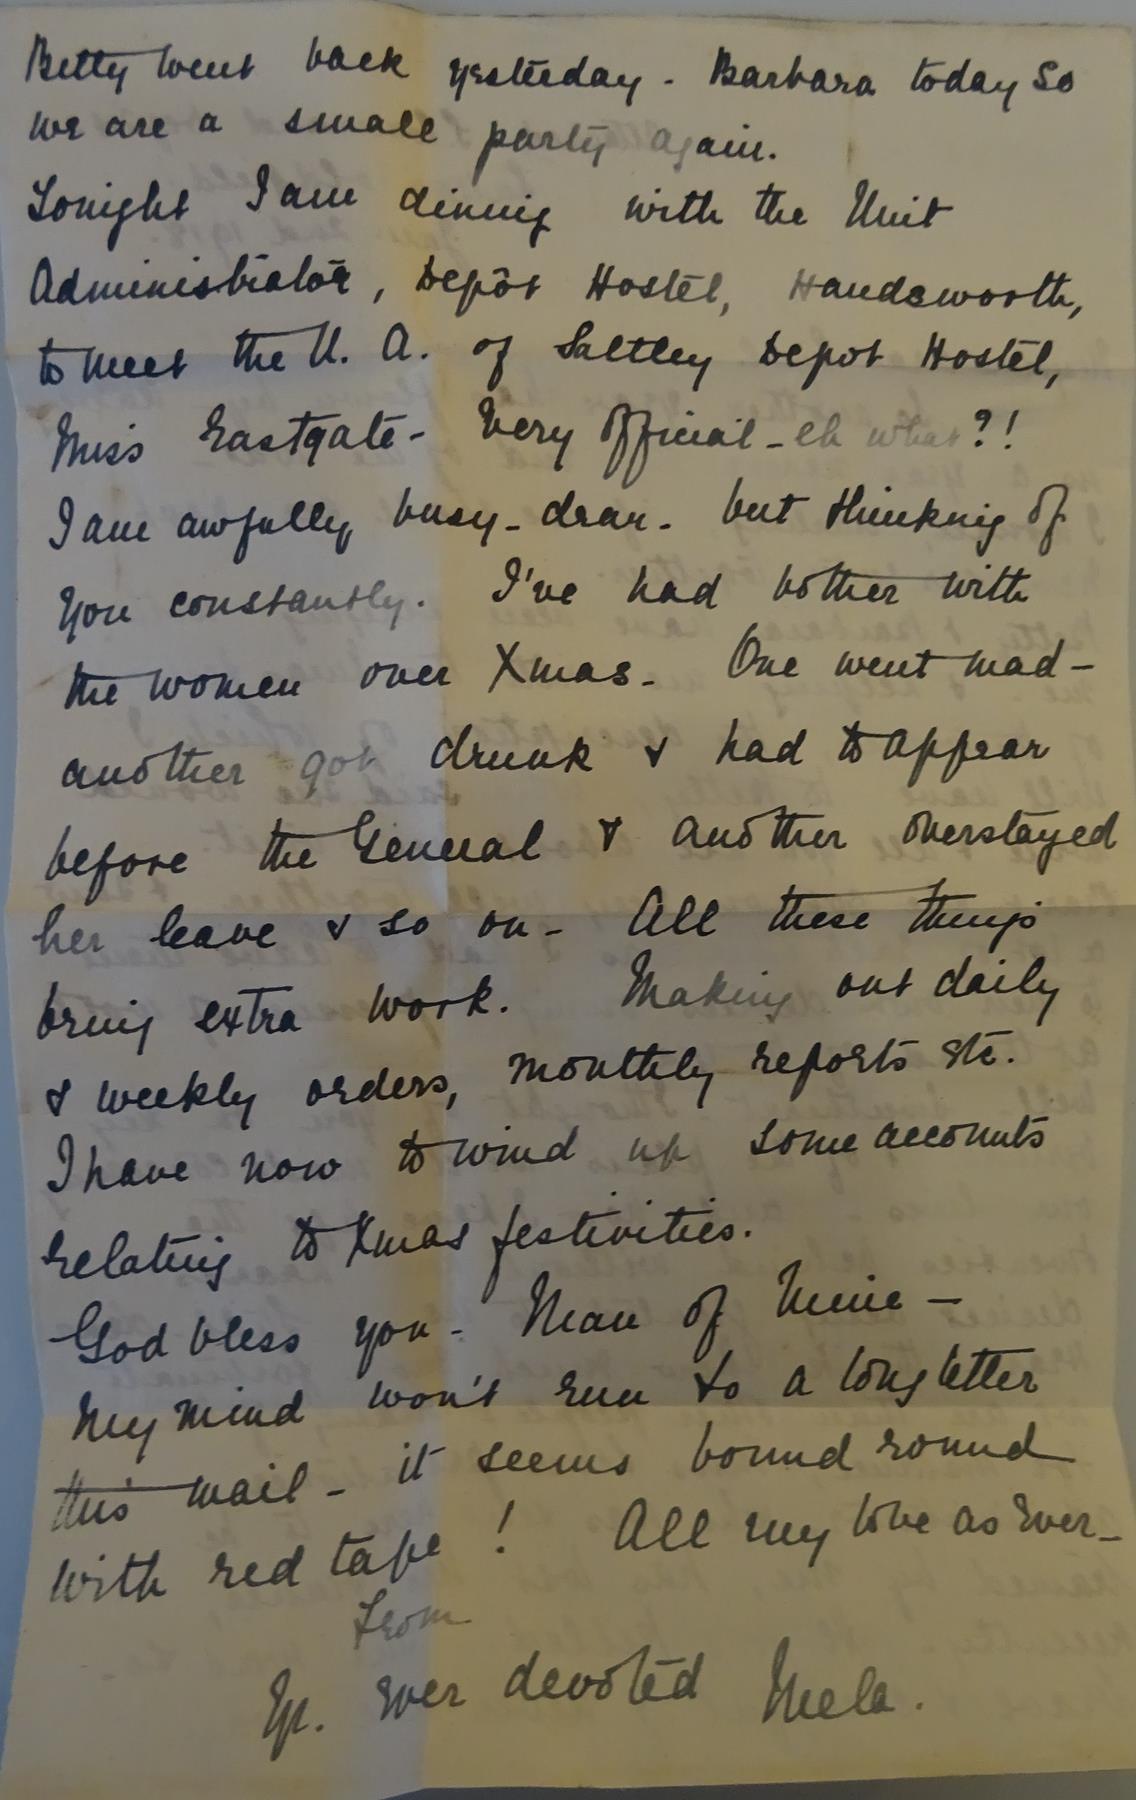 Betty went back yesterday - Barbara today so
we are a small party again.
Tonight I am dining with the Unit
Administrator, Depôt Hostel, Handsworth,
to meet the U. A. of Saltley Depot Hostel,
Miss Eastgate - Very official - eh what?!
I am awfully busy - dear - but thinking of
you constantly. I've had bother with
the women over Xmas - One went mad -
another got drunk & had to appear
before the General & another overstayed
her leave & so on - All these things
bring extra work. Making out daily
& weekly orders, monthly reports etc.
I have now to wind up some accounts
relating to Xmas festivities.
God bless you - Man of Mine -
My mind won't run to a long letter
this mail - it seems bound round
with red tape! All my love as Ever -
From
Yr. Ever devoted Mela.